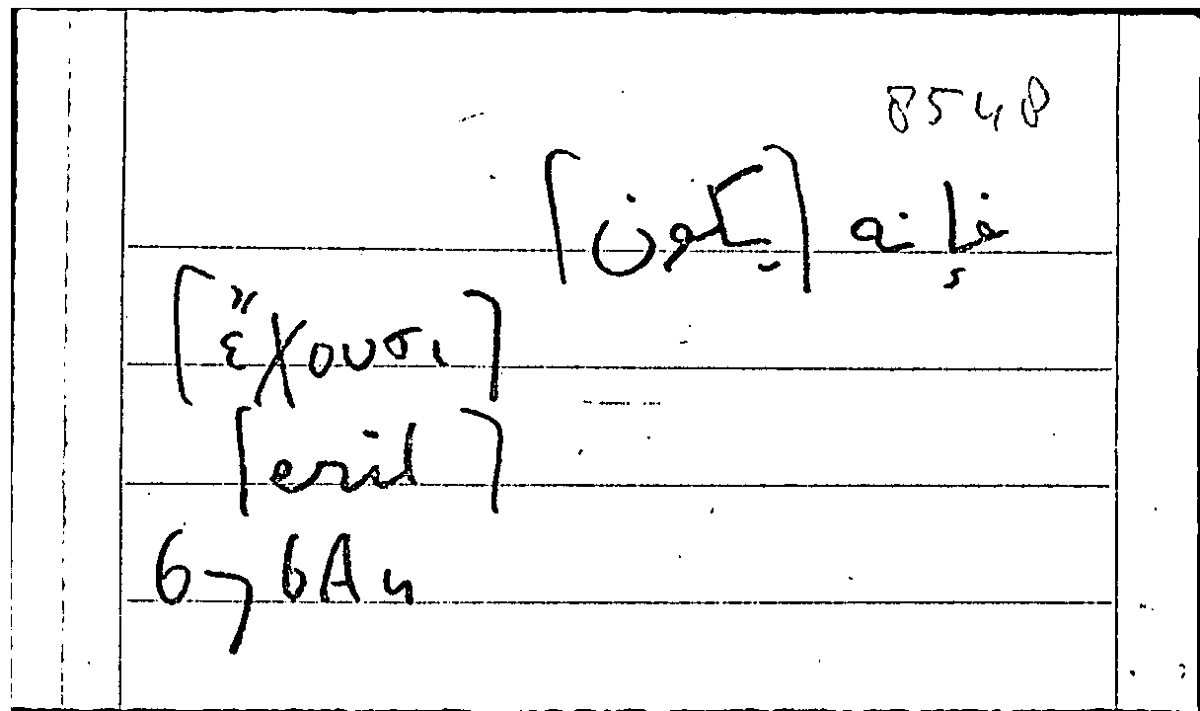 8548
فإنه [يكون]
[ἔχουσι]
[erit]
67 6A4